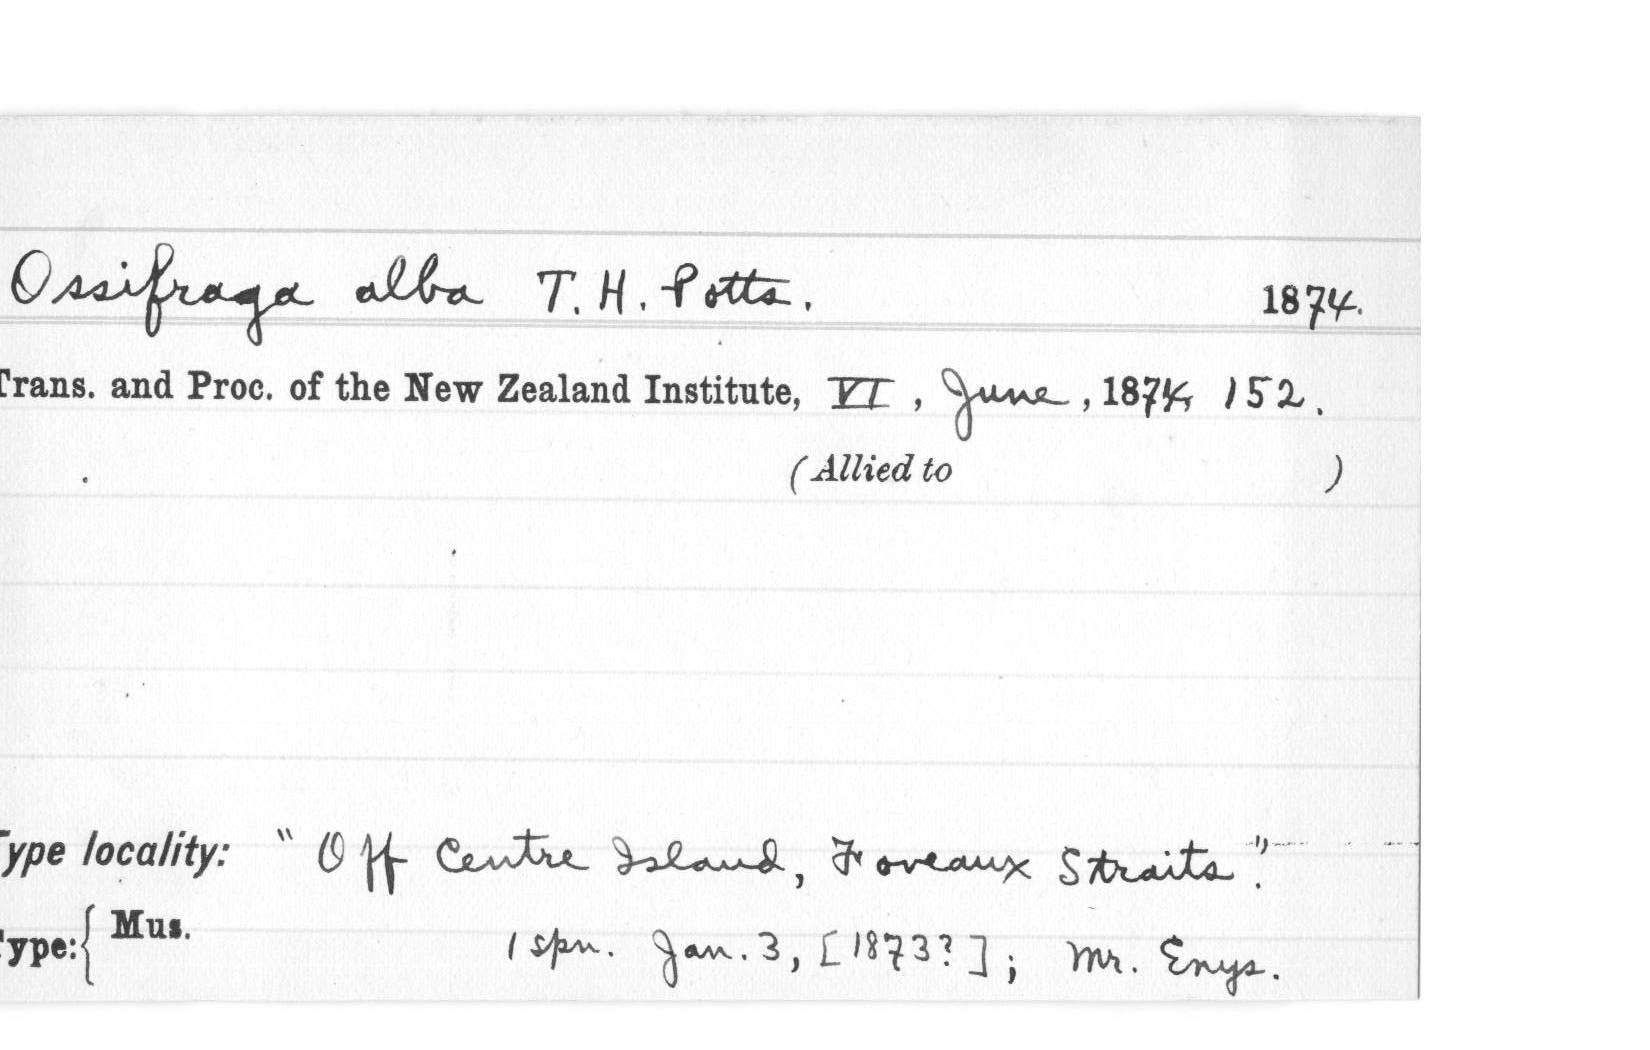 Ossifraga alba T. H. Potts. 1874.
Trans. and Proc. of the New Zealand Institute, VI, June, 1874, 152.
(Allied to )
Type locality: "Off Centre Island, Foveaux Straits".
Type: { Mus. 1 spn. Jan. 3, [1873?]; Mr. Enys.